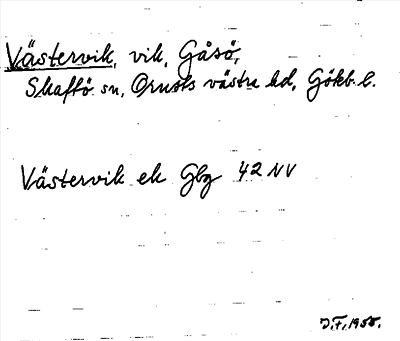 Västervik, vik, Gåsö,
Skaftö sn, Orusts västra hd, Gökb. l.
Västervik ek Gbg 42 NV
J.F. 1955.